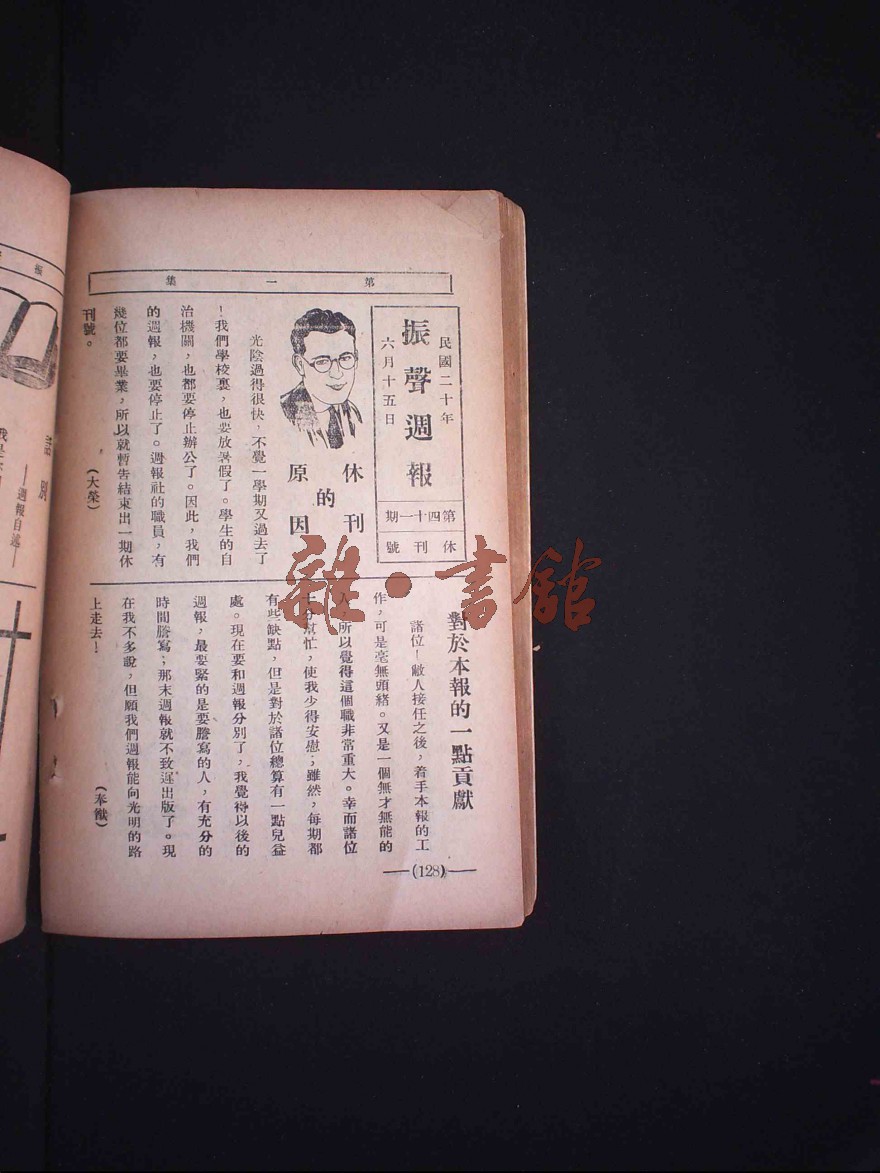 第一集
民國二十年
六月十五日
振聲週報
第四十一期
休刊號
休刊
的
原因
光陰過得很快,不覺一學期又過去了
!我們學校裏,也要放暑假了。學生的自
治機關,也都要停止辦公了。因此,我們
的週報,也要停止了。週報社的職員,有
幾位都要畢業,所以就暫告結束出一期休
刊號。
(大榮)
對於本報的一點貢獻
諸位!敝人接任之後,着手本報的工
作,可是毫無頭緒。又是一個無才無能的
人,所以覺得這個職非常重大。幸而諸位
十分幫忙,使我少得安慰;雖然,每期都
有些缺點,但是對於諸位總算有一點兒益
處。現在要和週報分別了,我覺得以後的
週報,最要緊的是要謄寫的人,有充分的
時間謄寫;那末週報就不致遲出版了。現
在我不多說,但願我們週報能向光明的路
上走去!
(奉猷)
(128)
話別
——週報自述——
雜·書館